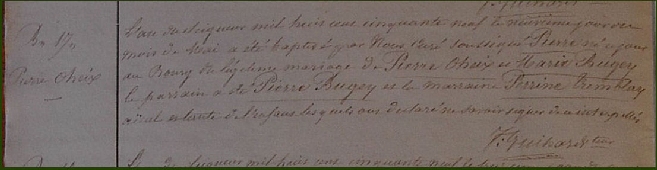 B. 17.
Pierre Cheix
L'an du seigneur mil huit cent cinquante neuf le neuvième jour du
mois de Mai a été baptisé par Nous Curé soussigné Pierre né ce jour
au Bourg du légitime mariage de Pierre Cheix et Marie Bugey
le parrain a été Pierre Bugey et la marraine Perrine Tremblay
aïeul et tante de l'enfant lesquels ont déclaré ne savoir signer de ce interpellés
L'an du seigneur mil huit cent cinquante neuf le